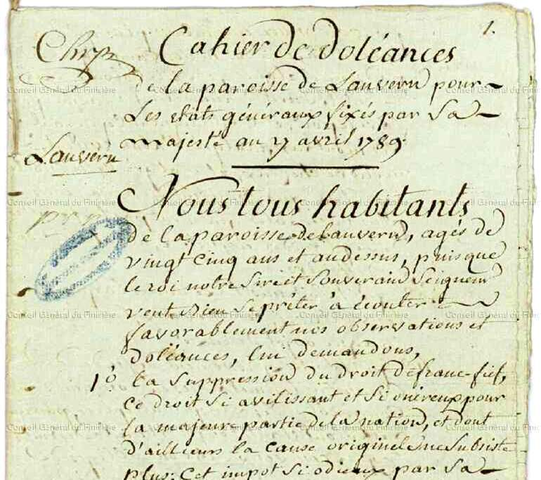 1.
Cahier de doléances
de la paroisse de Lanvern pour
Les etats généraux fixés par Sa
Majesté au 27 avril 1789.
Lanvern
Nous tous habitants
de la paroisse de Lanvern, agés de
vingt cinq ans et audessus, puisque
le roi notre Sire et Souverain Seigneur
veut bien Se préter à écouter
favorablement nos observations et
doléances, lui demandons,
1º. La Suppression du droit de franc-fief,
Ce droit Si avilissant et Si onéreux pour
la majeure partie de la nation, et dont
d'ailleurs la Cause originéle ne Subsiste
plus; Cet impot Si odieux par Sa
Conseil Général du Finistère